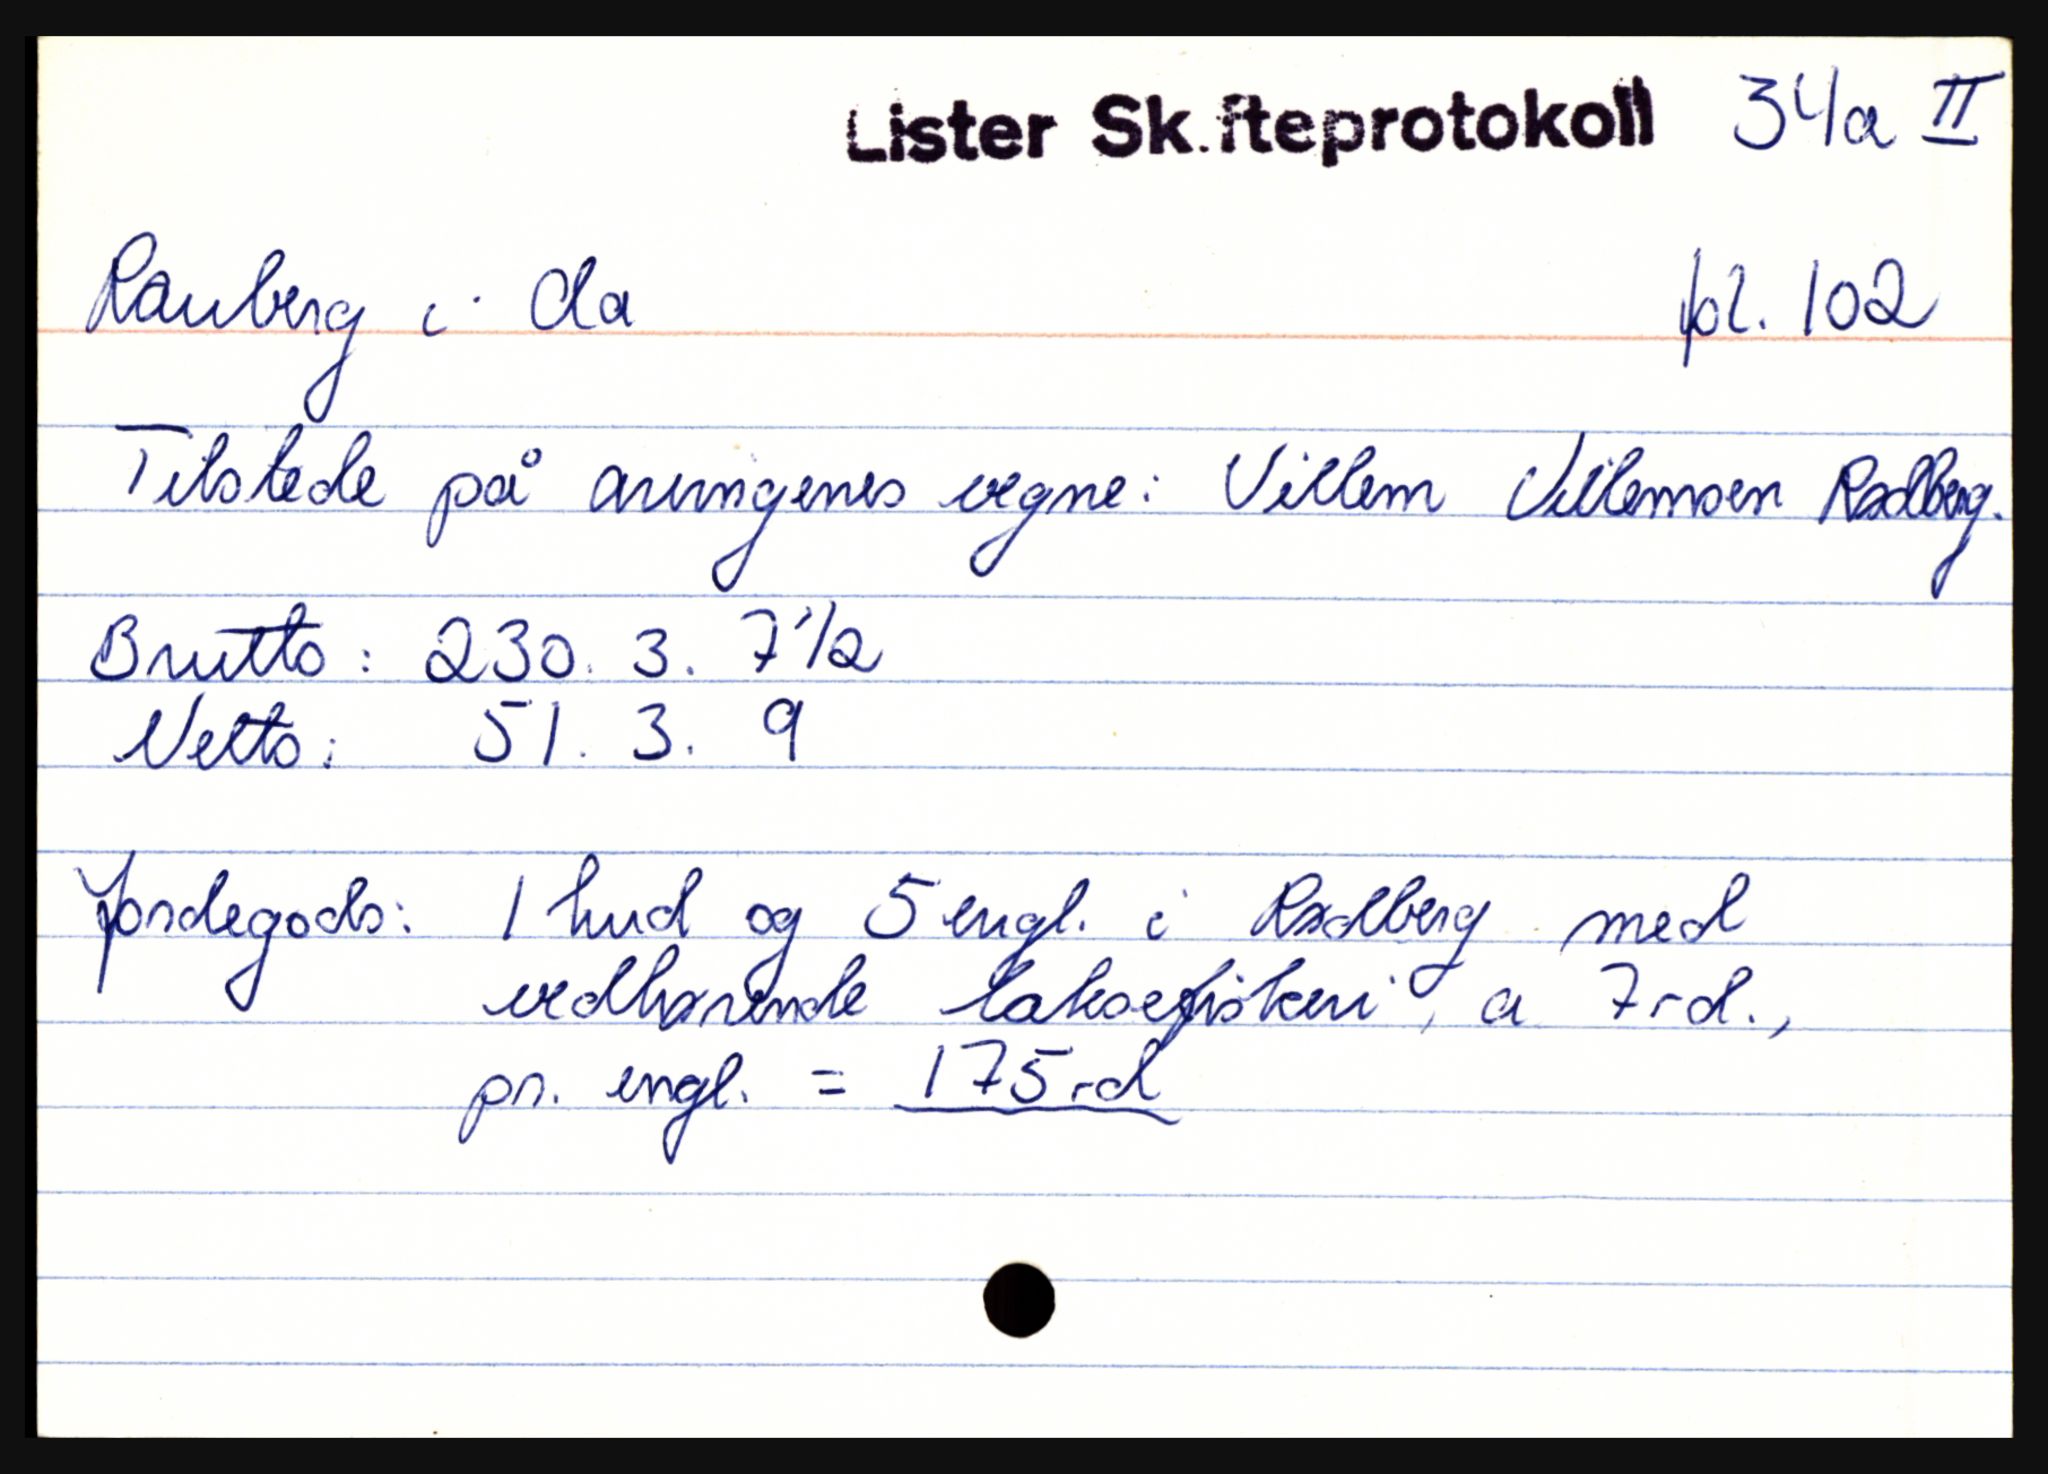 Lister Skifteprotokoll 34a II
Rauberg i Oa fol. 102
Tilstede på arvingenes vegne: Villem Villemsen Rødberg.
Brutto: 230. 3. 7 1/2
Netto: 51. 3. 9
Jordegods: 1 hud og 5 engl. i Rødberg med
vedhørende laksefiskeri, a 7 rd.,
pr. engl. = 175 rd